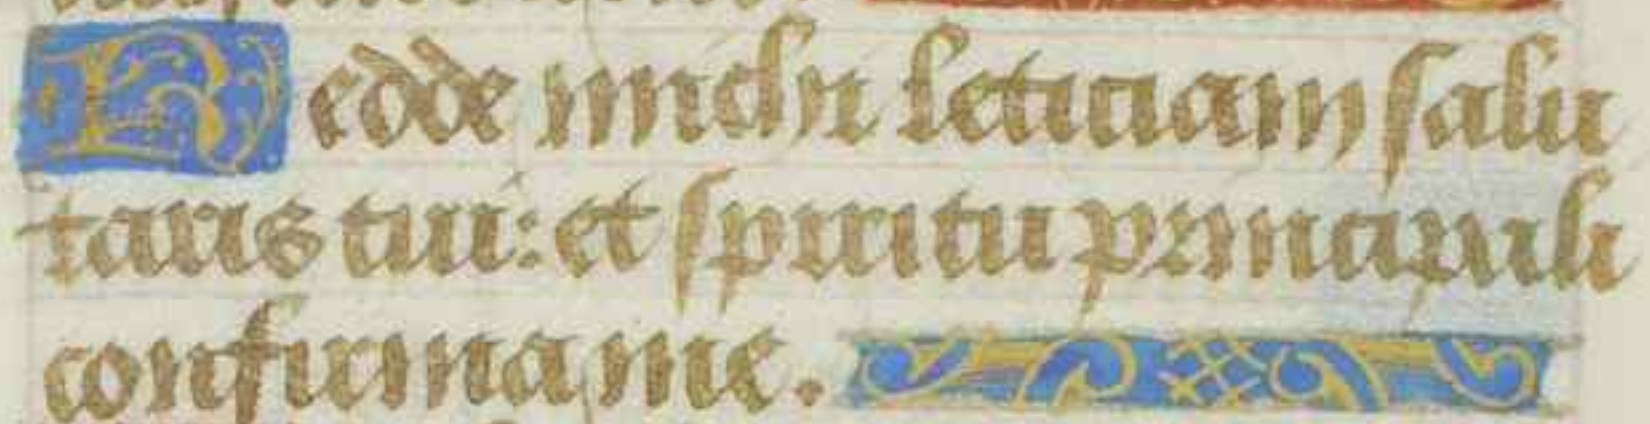 Redde michi leticiam salu
taris tui: et spiritu principali
confirma me.